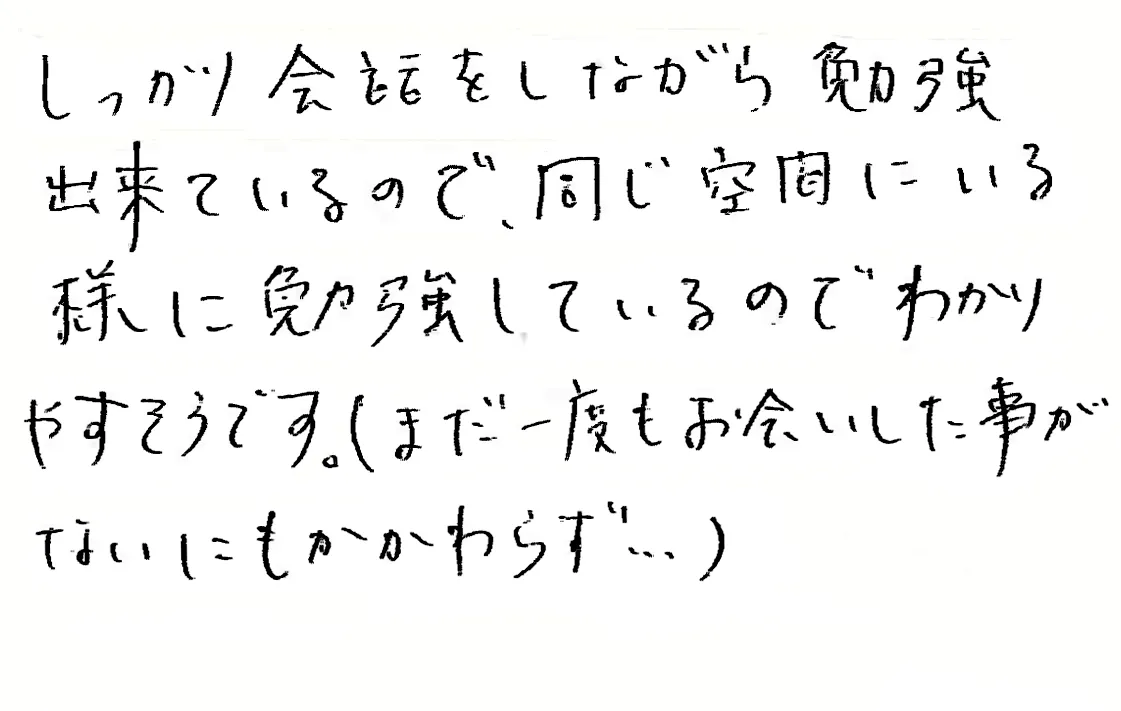 しっかり会話をしながら勉強
出来ているので、同じ空間にいる
様に勉強しているのでわかり
やすそうです。(まだ一度もお会いした事が
ないにもかかわらず…)